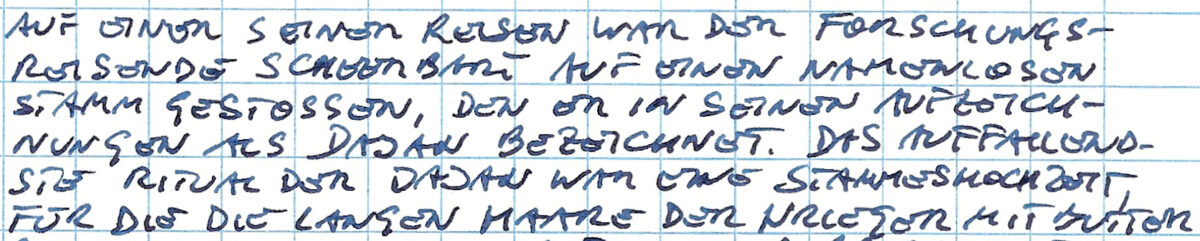 AUF EINER SEINER REISEN WAR DER FORSCHUNGS-
REISENDE SCHEERBART AUF EINEN NAMENLOSEN
STAMM GESTOSSEN, DEN ER IN SEINEN AUFZEICH-
NUNGEN ALS DAJAN BEZEICHNET. DAS AUFFALLEND-
STE RITUAL DER DAJAN WAR EINE STAMMESHOCHZEIT,
FÜR DIE DIE LANGEN HAARE DER KRIEGER MIT BUTTER